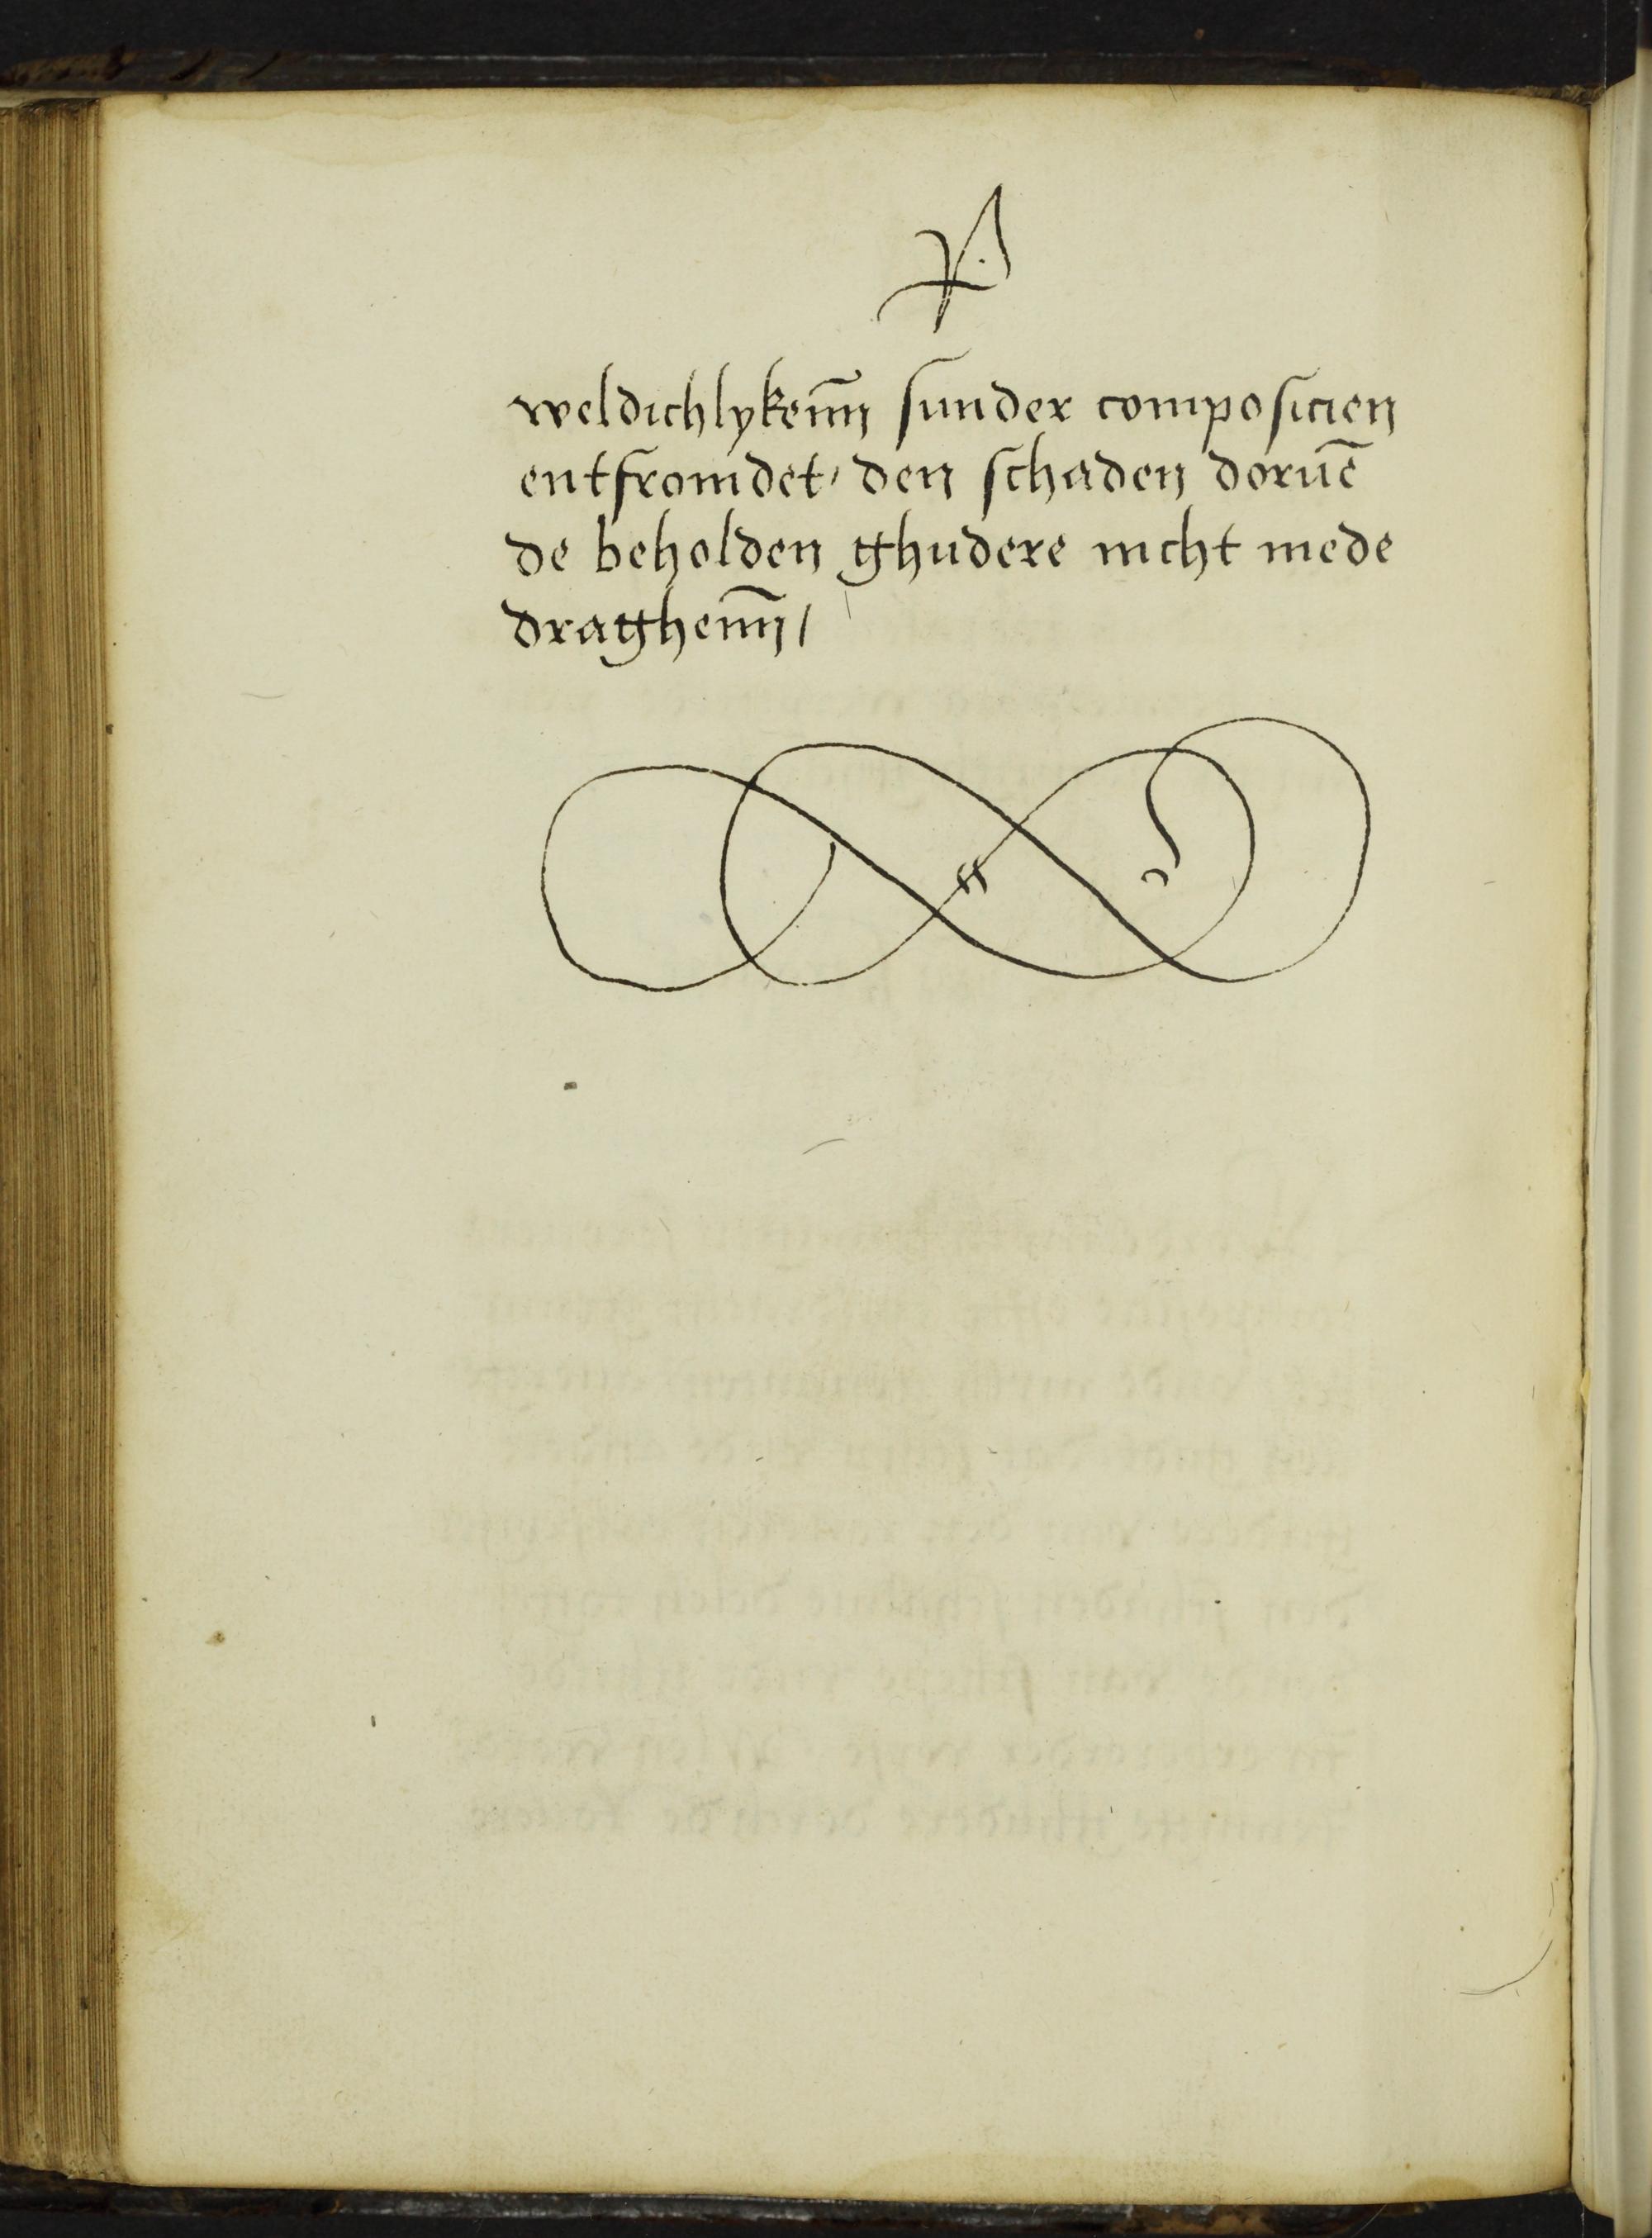 weldichlykem̄ sunder composicien
entfromdet, den schaden doruē
de beholden ghudere nicht mede
draghem̄/